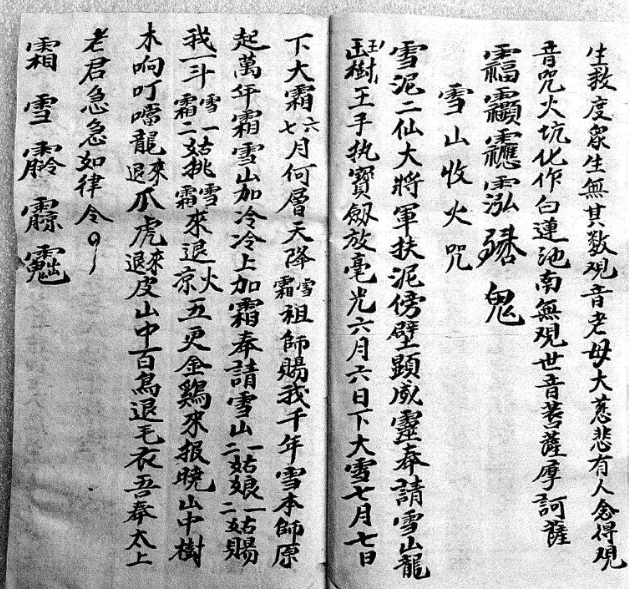 生救度眾生無其数观音老母大慈悲有人念得观
音咒火坑化作白蓮池南無观世音菩薩摩訶薩
鬼
雪山收火咒
雪泥二仙大將軍扶泥傍壁顕威靈奉請雪山龍
樹王手执寳劔放毫光六月六日下大雪七月七日
下大霜六七月何層天降雪霜祖師賜我千年雪本師原
起萬年霜雪山加冷冷上加霜奉請雪山一二姑娘一二姑賜
我一斗雪霜一二姑挑雪霜來退火凉五更金鷄來报曉山中樹
木响叮噹龍來退爪虎來退皮山中百鳥退毛衣吾奉太上
老君急急如律令
霜雪